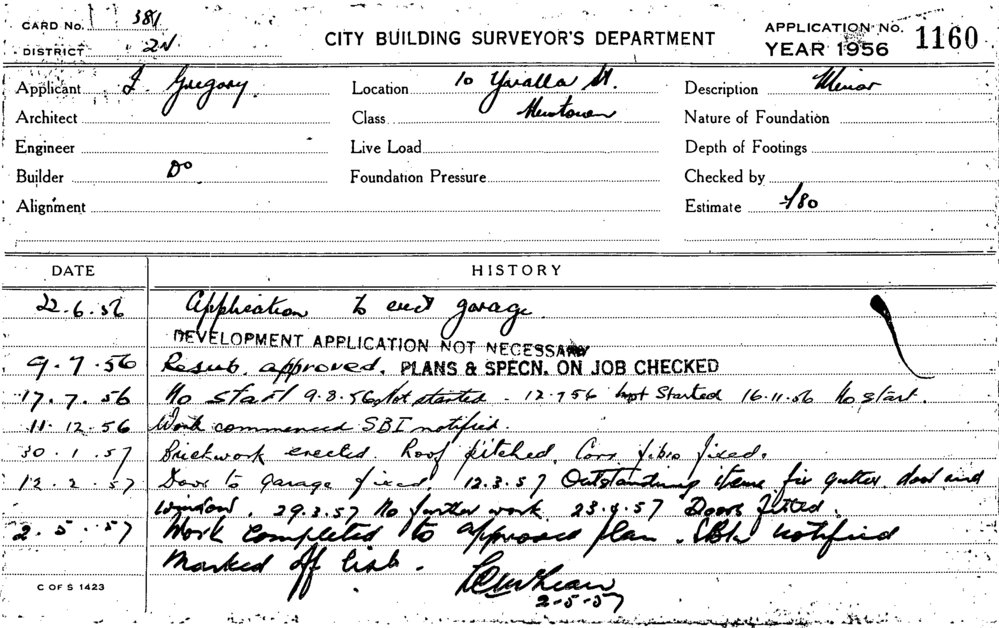 CARD No. 381
DISTRICT 2N
CITY BUILDING SURVEYOR'S DEPARTMENT
APPLICATION No. 1160
YEAR 1956
Applicant J. Gregory.
Location 10 Yaralla St.
Description Minor
Architect
Class Newtown
Nature of Foundation
Engineer
Live Load
Depth of Footings
Builder Do
Foundation Pressure
Checked by
Alignment
Estimate £180
DATE HISTORY
22.6.56 Application to erect garage.
DEVELOPMENT APPLICATION NOT NECESSARY
9.7.56 Resub. approved. PLANS & SPECN. ON JOB CHECKED
17.7.56 No start 9.8.56 Not started. 12.9.56 Not Started 16.11.56 No start.
11.12.56 Work commenced SBI notified.
30.1.57 Brickwork erected. Roof pitched. Corr fibro fixed.
12.2.57 Door to garage fixed. 12.3.57 Outstanding items fix gutter door and
window. 29.3.57 No further work 23.4.57 Doors fitted.
2.5.57 Work completed to approved plan. SBI notified
Marked off list.
2-5-57
C OF S 1423